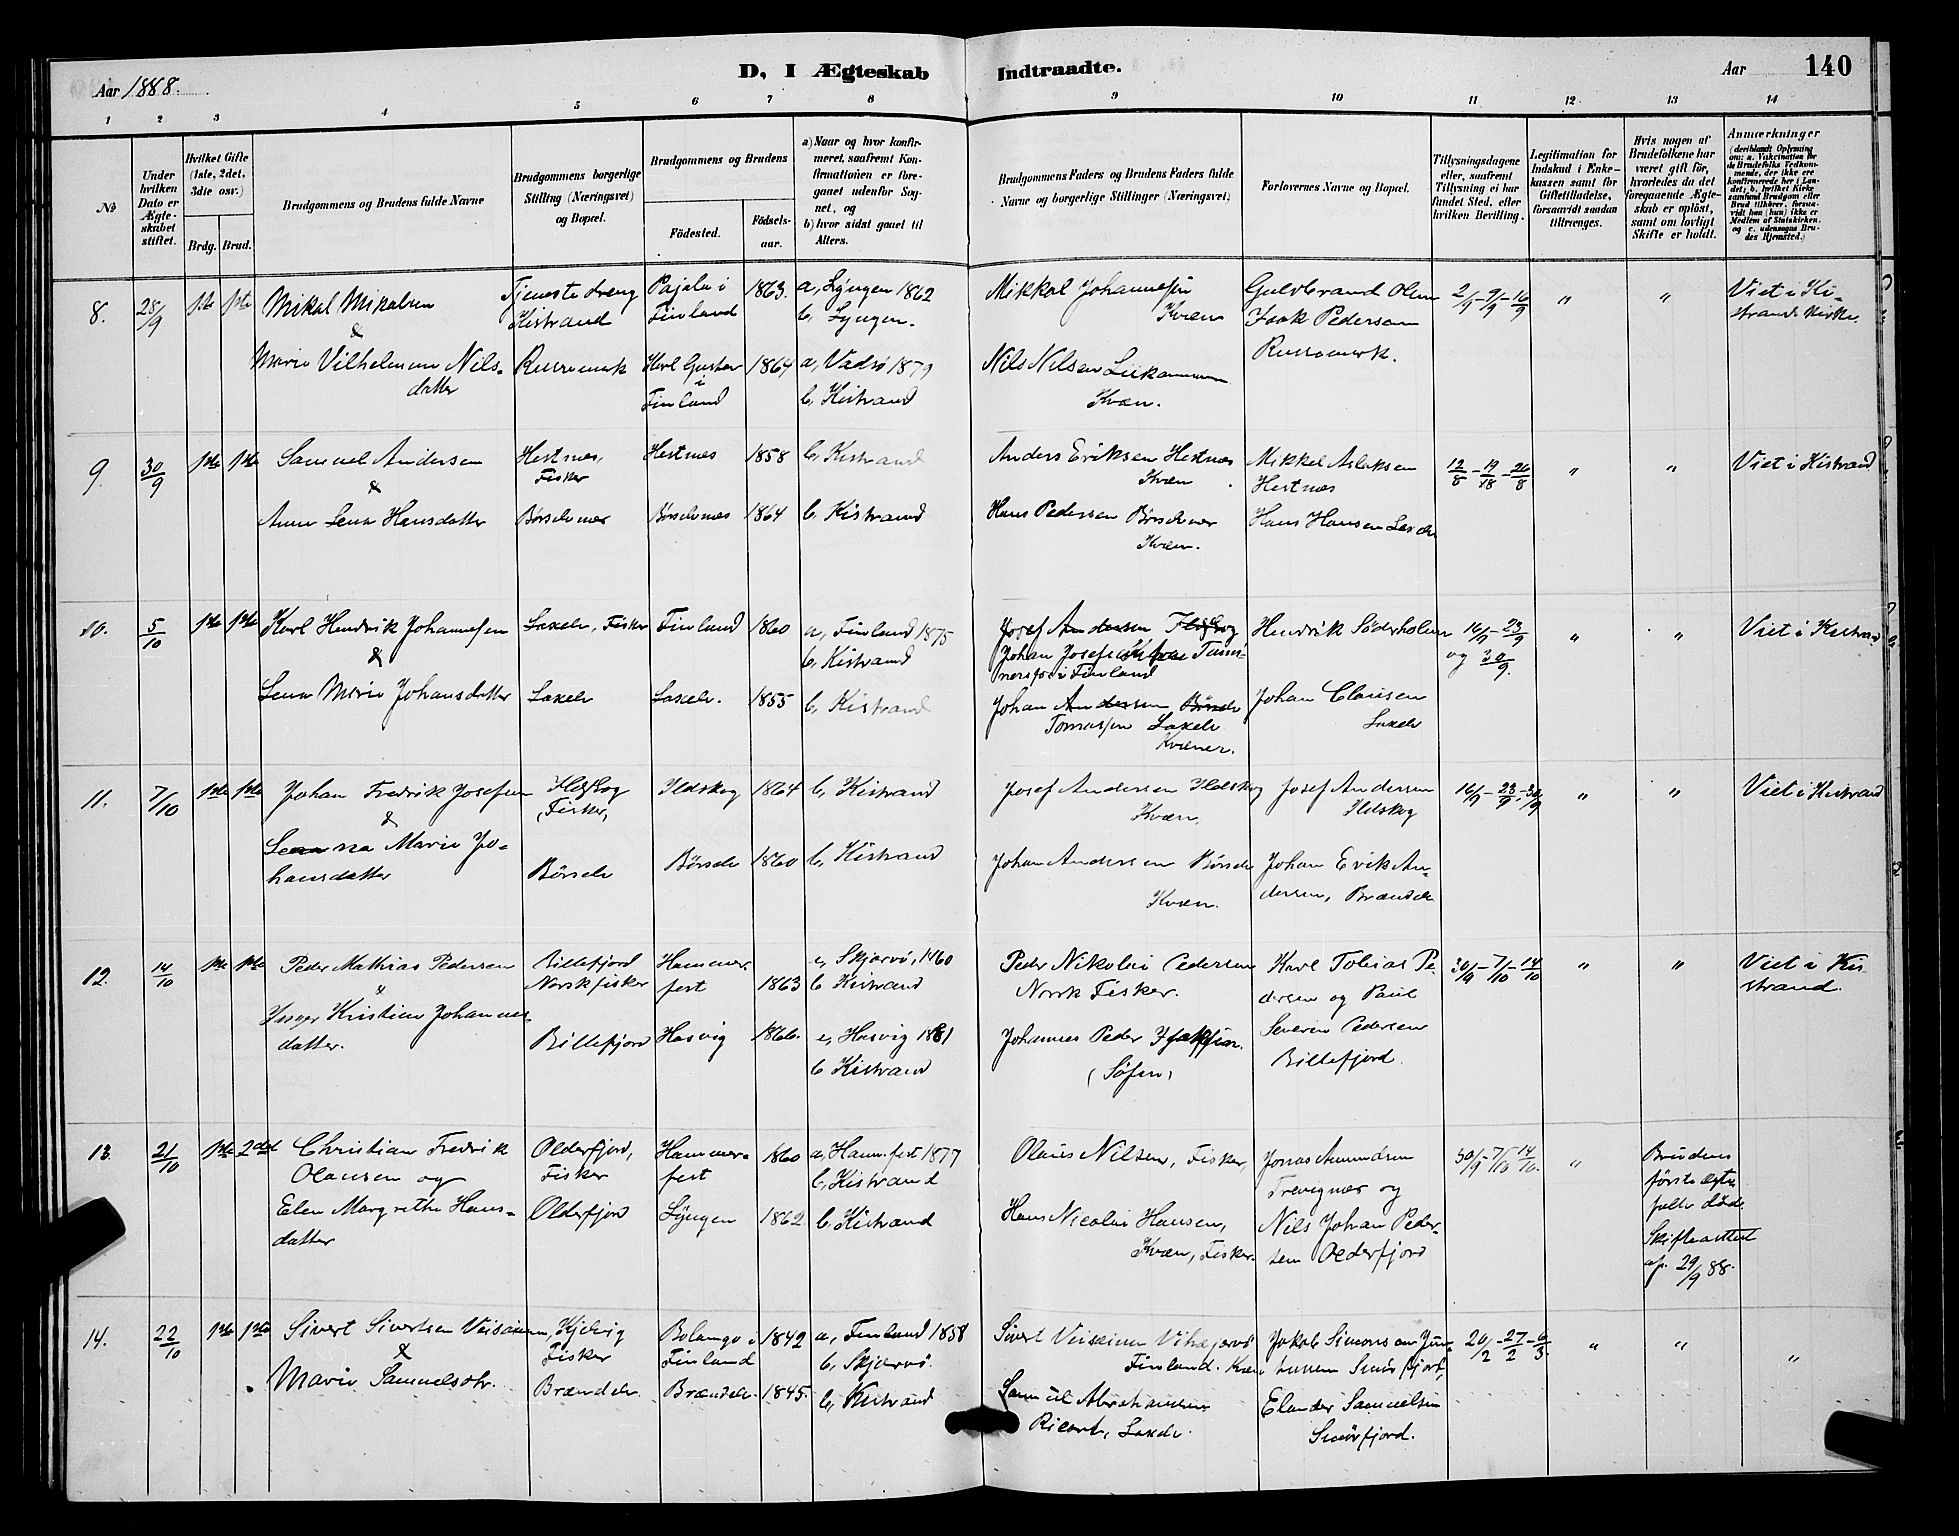 Aar 1888.
D, I Ægteskab Indtraadte.
Aar 140
1 2 3 4 5 6 7 8 9 10 11 12 13 14
No
Under hvilken Dato er Ægteskabet stiftet.
Hvilket Gifte (1ste, 2det, 3die osv.)
Brdg. Brud.
Brudgommens og Brudens fulde Navne
Brudgommens borgerlige Stilling (Næringsvei) og Bopæl.
Brudgommens og Brudens
Födested.
Födselsaar.
a) Naar og hvor konfirmeret, saafremt Konfirmationen er foregaaet udenfor Sognet, og
b) hvor sidst gaaet til Alters.
Brudgommens Faders og Brudens Faders fulde Navne og borgerlige Stillinger (Næringsvei)
Forlovernes Navne og Bopæl.
Tillysningsdagene eller, saafremt Tillysning ei har fundet Sted, efter hvilken Bevilling.
Legitimation for Indskud i Enkekassen samt for Giftetilladelse, forsaavidt saadan tiltrænges.
Hvis nogen af Brudefolkene har været gift för, hvorledes da det foregaaende Ægteskab er oplöst, samt om lovligt Skifte er holdt.
Anmærkninger (deriblandt Oplysning om: a. Vaccination for de Brudefolks Vedkommende, der ikke ere konfirmerede her i Landet; b. hvilket Kirkesamfund Brudgom eller Brud tilhörer, forsaavidt han (hun) ikke er Medlem af Statskirken, og c. udensogns Brudes Hjemsted.)
8. 28/9 1ste 1ste Mikal Mikalsen
&
Marie Vilhelmine Nilsdatter
Tjeneste dreng
Kistrand
Russemark
Pajala i Finland 1863. a, Lyngen 1862
b, Lyngen.
Karl Gustav i Finland 1864 a, Vadsö 1879
b, Kistrand
Mikkal Johannesen
Kvæn
Nils Nilsen
Kvæn.
Guldbrand Olsen
Isak Pedersen
Russemark.
2/9 - 9/9 - 16/9 " "
Viet i Kistrand Kirke.
9. 30/9 1ste 1ste Samuel Andersen
&
Anne Lena Hansdatter
Hestnæs, Fisker
Börselvnes
Hestnæs 1858 b, Kistrand
Börselvnes 1864 b, Kistrand
Anders Eriksen Hestnæs
Kvæn
Hans Pedersen Börselvnes
Kvæn.
Mikkel Aslaksen
Hestnæs
Hans Hansen Laxelv
12/8 - 19/18 - 26/8 " "
Viet i Kistrand
10. 5/10 1ste 1ste Karl Hendrik Johannesen
&
Lena Marie Johansdatter
Laxelv, Fisker
Laxelv
Finland 1860 a, Finland 1875
b, Kistrand
Laxelv. 1855 b, Kistrand
Josef Andersen Ildskog
Johan Josefsen
i Finland
Johan Andersen Börselv
Tomassen Laxelv
Kvæner.
Hendrik Söderholm
Johan Clausen
Laxelv
16/9 - 23/9
og 30/9. " "
Viet i Kistrand
11. 7/10 1ste 1ste Johan Fredrik Josefsen
&
Marie Johansdatter
Ildskog
Fisker,
Börselv
Ildskog 1864 b, Kistrand
Börselv 1860 b, Kistrand
Josef Andersen Ildskog
Kvæn,
Johan Andersen Börselv
Kvæn.
Josef Andersen
Ildskog
Johan Erik Andersen, Brændelv
16/9 - 23/9 - 30/9 " "
Viet i Kistrand
12. 14/10 1ste 1ste Peder Mathias Pedersen
&
Kristine Johannesdatter.
Billefjord
Norsk fisker
Billefjord
Hammerfest 1863
b Kistrand
Hasvig 1866. a, Hasvig 1881
b Kistrand
Peder Nikolai Pedersen
Norsk Fisker.
Johannes Peder
(Söfin)
Karl Tobias Pedersen og Paul
Severin Pedersen
Billefjord.
30/9 - 7/10 - 14/10 " "
Viet i Kistrand.
13. 21/10 1ste 2det Christian Fredrik
Olausen og
Elen Margrethe Hansdatter
Olderfjord,
Fisker
Olderfjord
Hammerfest 1860 a, Ham.fest 1877
b, Kistrand
Lyngen 1862 b, Kistrand
Olaus Nilsen, Fisker,
Hans Nicolai Hansen,
Kvæn, Fisker.
Jonas Amundsen
og
Nils Johan Pedersen Olderfjord
30/9 - 7/10 14/10. "
Brudens
förste ægtefælle död.
Skifteattest
af. 29/9 88.
14. 22/10 1ste 1ste Sivert Sivertsen
&
Marie Samuelsdtr.
Fisker
Brændelv.
Finland 1842 a, Finland 1858
b, Skjærvö.
Brændelv. 1845. b, Kistrand
Sivert
Finland. Kvæn
Samuel Abrahamsen
Laxelv.
Jakob Simonsen
Smörfjord,
Samuelsen
Smörfjord.
20/2 - 27/2 - 6/3. " " "